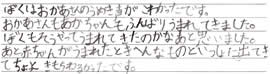 ぼくはおかあさんのうめき声が こわかったです。
おかあさんもあかちゃんもふんばりうまれてきました。
ぼくもんちゃってうまれてきたのかなあと思いました。
あと赤ちゃんがうまれたときへんなものといっしょに出てき
てちょっときもちわるかったです。